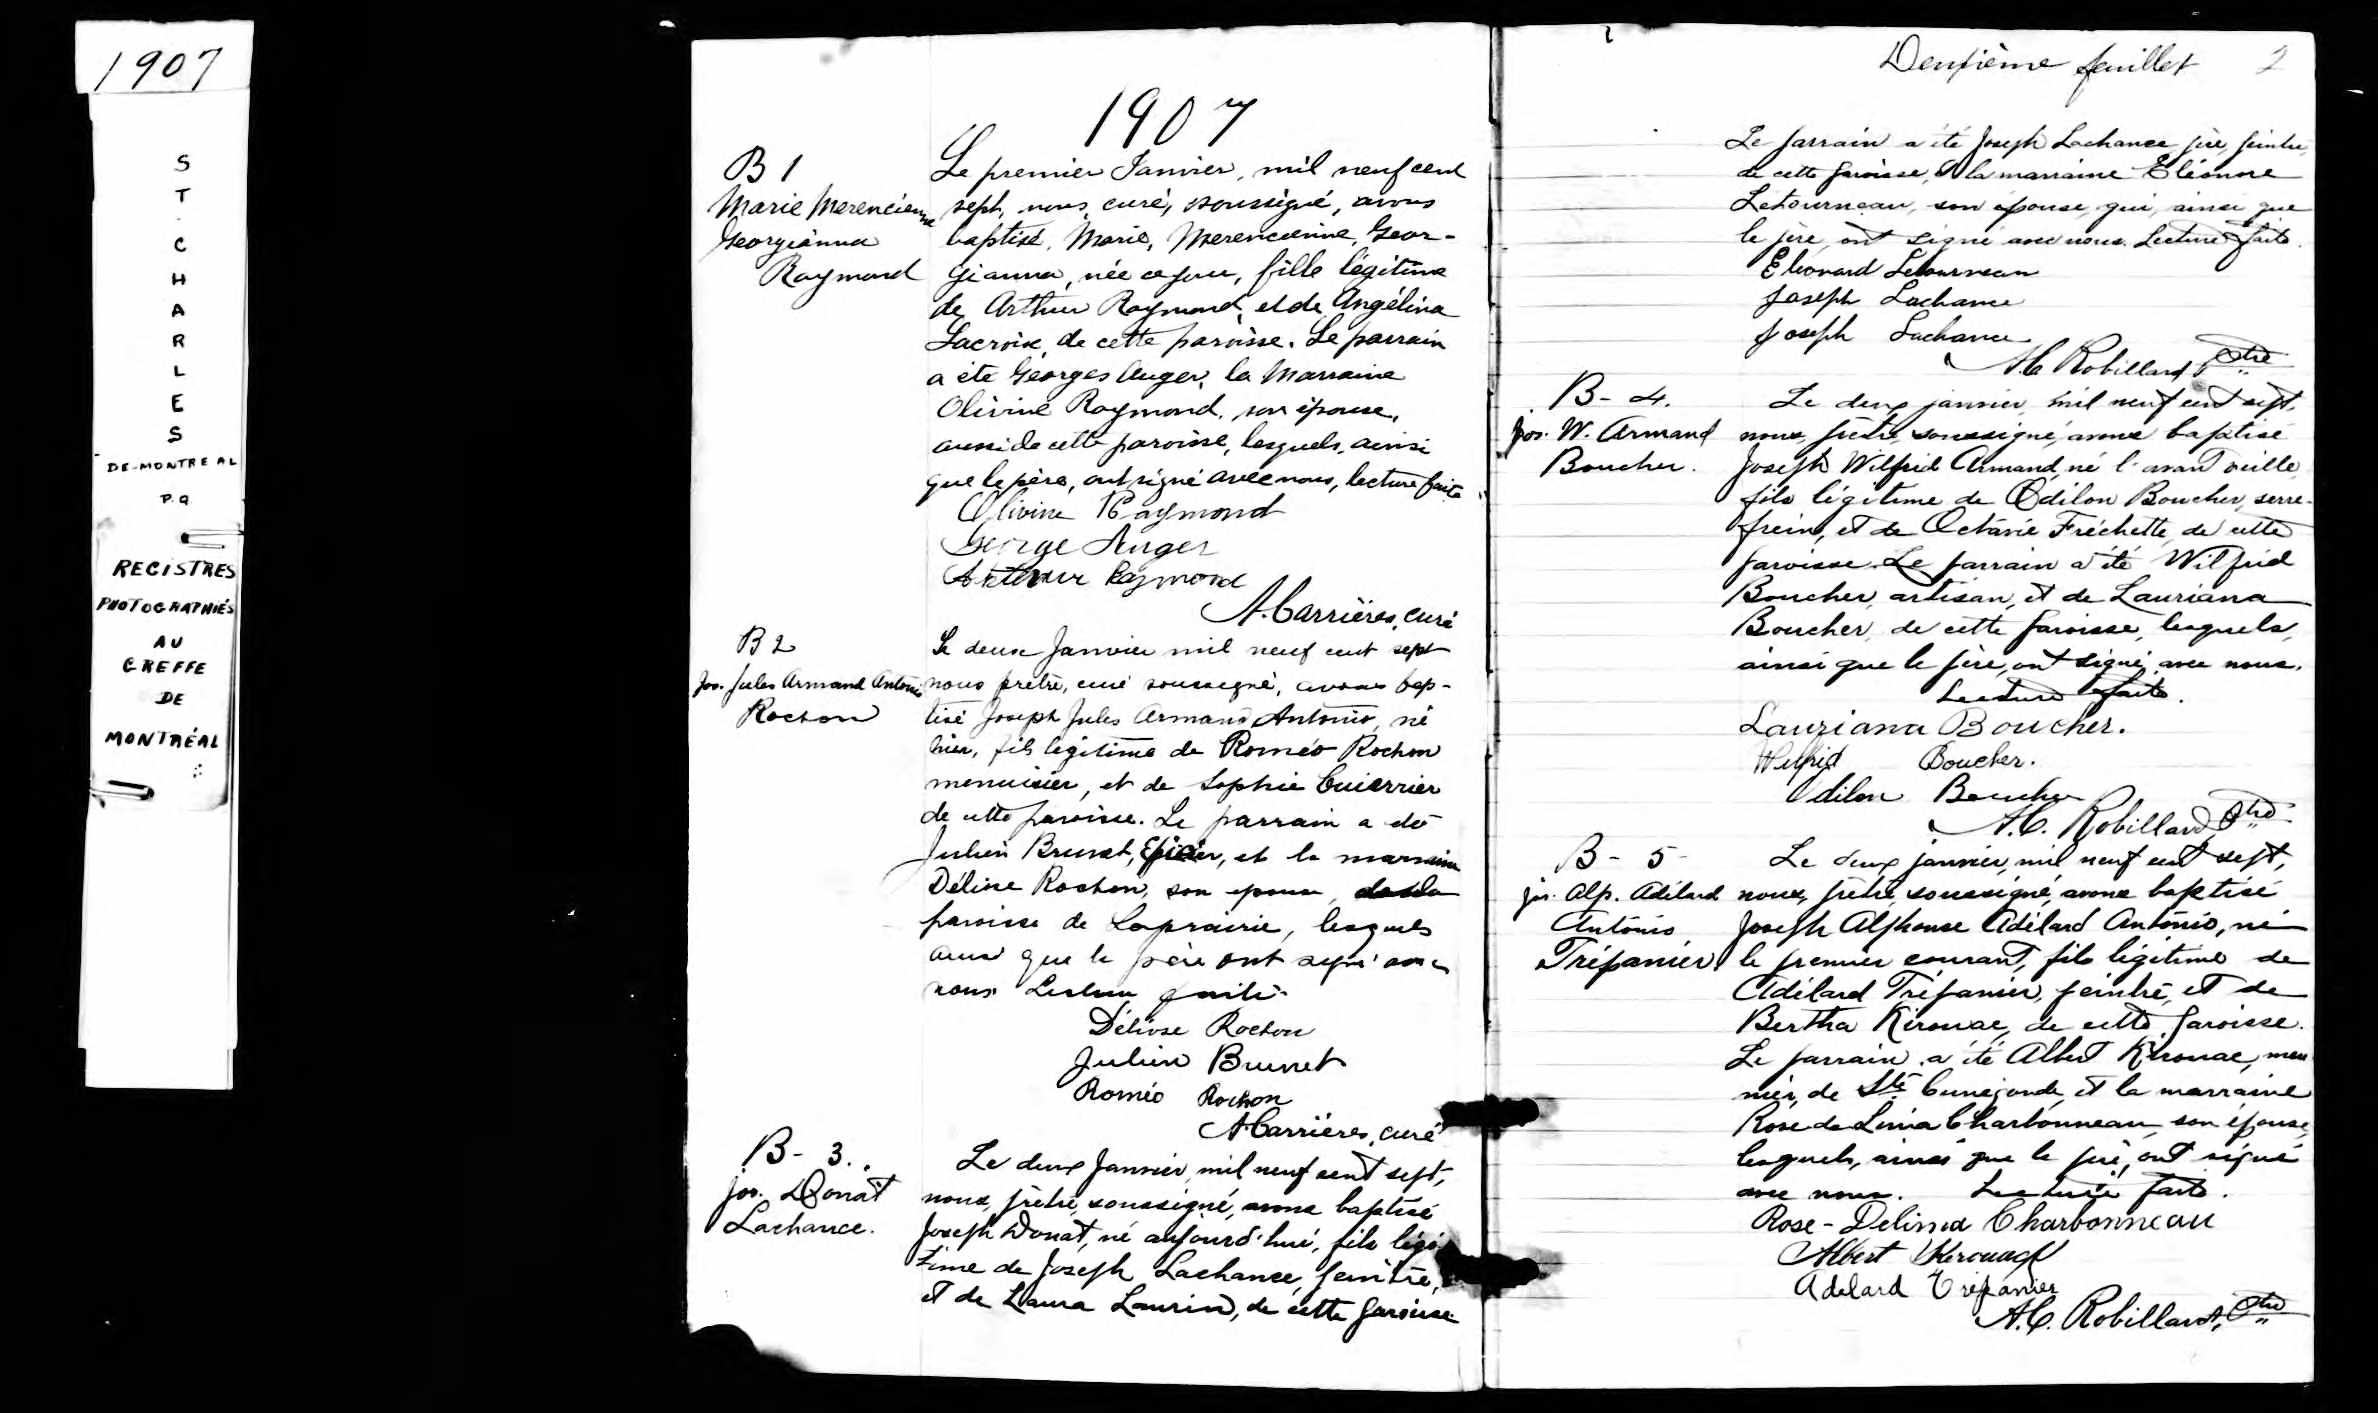 1907
S
T
.
C
H
A
R
L
E
S
DE-MONTREAL
P.Q
REGISTRES
PHOTOGRAPHIÉS
AU
GREFFE
DE
MONTRÉAL
1907
B 1
Marie Merencienne
Georgianna
Raymond
Le premier Janvier, mil neuf cent
sept, nous, curé, soussigné, avons
baptisé, Marie, Merencienne, Geor-
gianna, née ce jour, fille légitime
de Arthur Raymond, et de Angélina
Lacroix, de cette paroisse. Le parrain
a été Georges Auger, la Marraine
Olivine Raymond, son épouse,
aussi de cette paroisse, lesquels, ainsi
que le père, ont signé avec nous, lecture faite
Olivine Raymond
George Auger
Arthur Raymond
A. Carrières, curé
B 2
Jos. Jules Armand Antonio
Rochon
Le deux Janvier mil neuf cent sept
nous prêtre, curé soussigné, avons bap-
tisé Joseph Jules Armand Antonio, né
hier, fils légitime de Roméo Rochon
menuisier, et de Sophie Cuierrier
de cette paroisse. Le parrain a été
Julien Brunet, Epicier, et la marraine
Délise Rochon, son epouse, de la
paroisse de Laprairie, lesquels
ainsi que le père ont signé avec
nous Lecture faite.
Rochon
Julien Brunet
Roméo Rochon
A Carrières, curé
B- 3.
Jos. Donat
Lachance.
Le deux Janvier, mil neuf cent sept,
nous, prêtre, soussigné, avons baptisé
Joseph Donat, né aujourd'hui, fils légi
time de Joseph Lachance, peintre,
et de Laura Laurin, de cette paroisse
Deuxième feuillet 2
Le parrain a été Joseph Lachance, père, peintre,
de cette paroisse, & la marraine Eléonore
Letourneau, son épouse, qui, ainsi que
le père, ont signé avec nous. Lecture faite.
Letourneau
Joseph Lachance
Joseph Lachance
A.C. Robillard, Ptre
B- 4.
Jos. W. Armand
Boucher.
Le deux janvier, mil neuf cent sept,
nous, prêtre, soussigné, avons baptisé
Joseph Wilfrid Armand, né l'avant veille,
fils légitime de Odilon Boucher, serre-
frein, et de Octavie Fréchette, de cette
paroisse. Le parrain a été Wilfrid
Boucher, artisan, et de Lauriana
Boucher, de cette paroisse, lesquels,
ainsi que le père, ont signé, avec nous.
Lecture faite.
Lauriana Boucher.
Wilfrid Boucher.
Odilon Boucher
A.C. Robillard, Ptre
B- 5-
jos. Alp. Adélard
Antonio
Trépanier
Le deux janvier, mil neuf cent sept,
nous, prêtre, soussigné, avons baptisé
Joseph Alphonse Adélard Antonio, né
le premier courant, fils légitime de
Adélard Trépanier, peintre, et de
Bertha Kirouac, de cette paroisse.
Le parrain a été Albert Kirouac,
de Ste Cunégonde, et la marraine
Rose de Lima Charbonneau, son épouse,
lesquels, ainsi que le père, ont signé
avec nous. Lecture faite.
Rose-Delima Charbonneau
Albert Kerouack
Adelard Trépanier
A.C. Robillard, Ptre